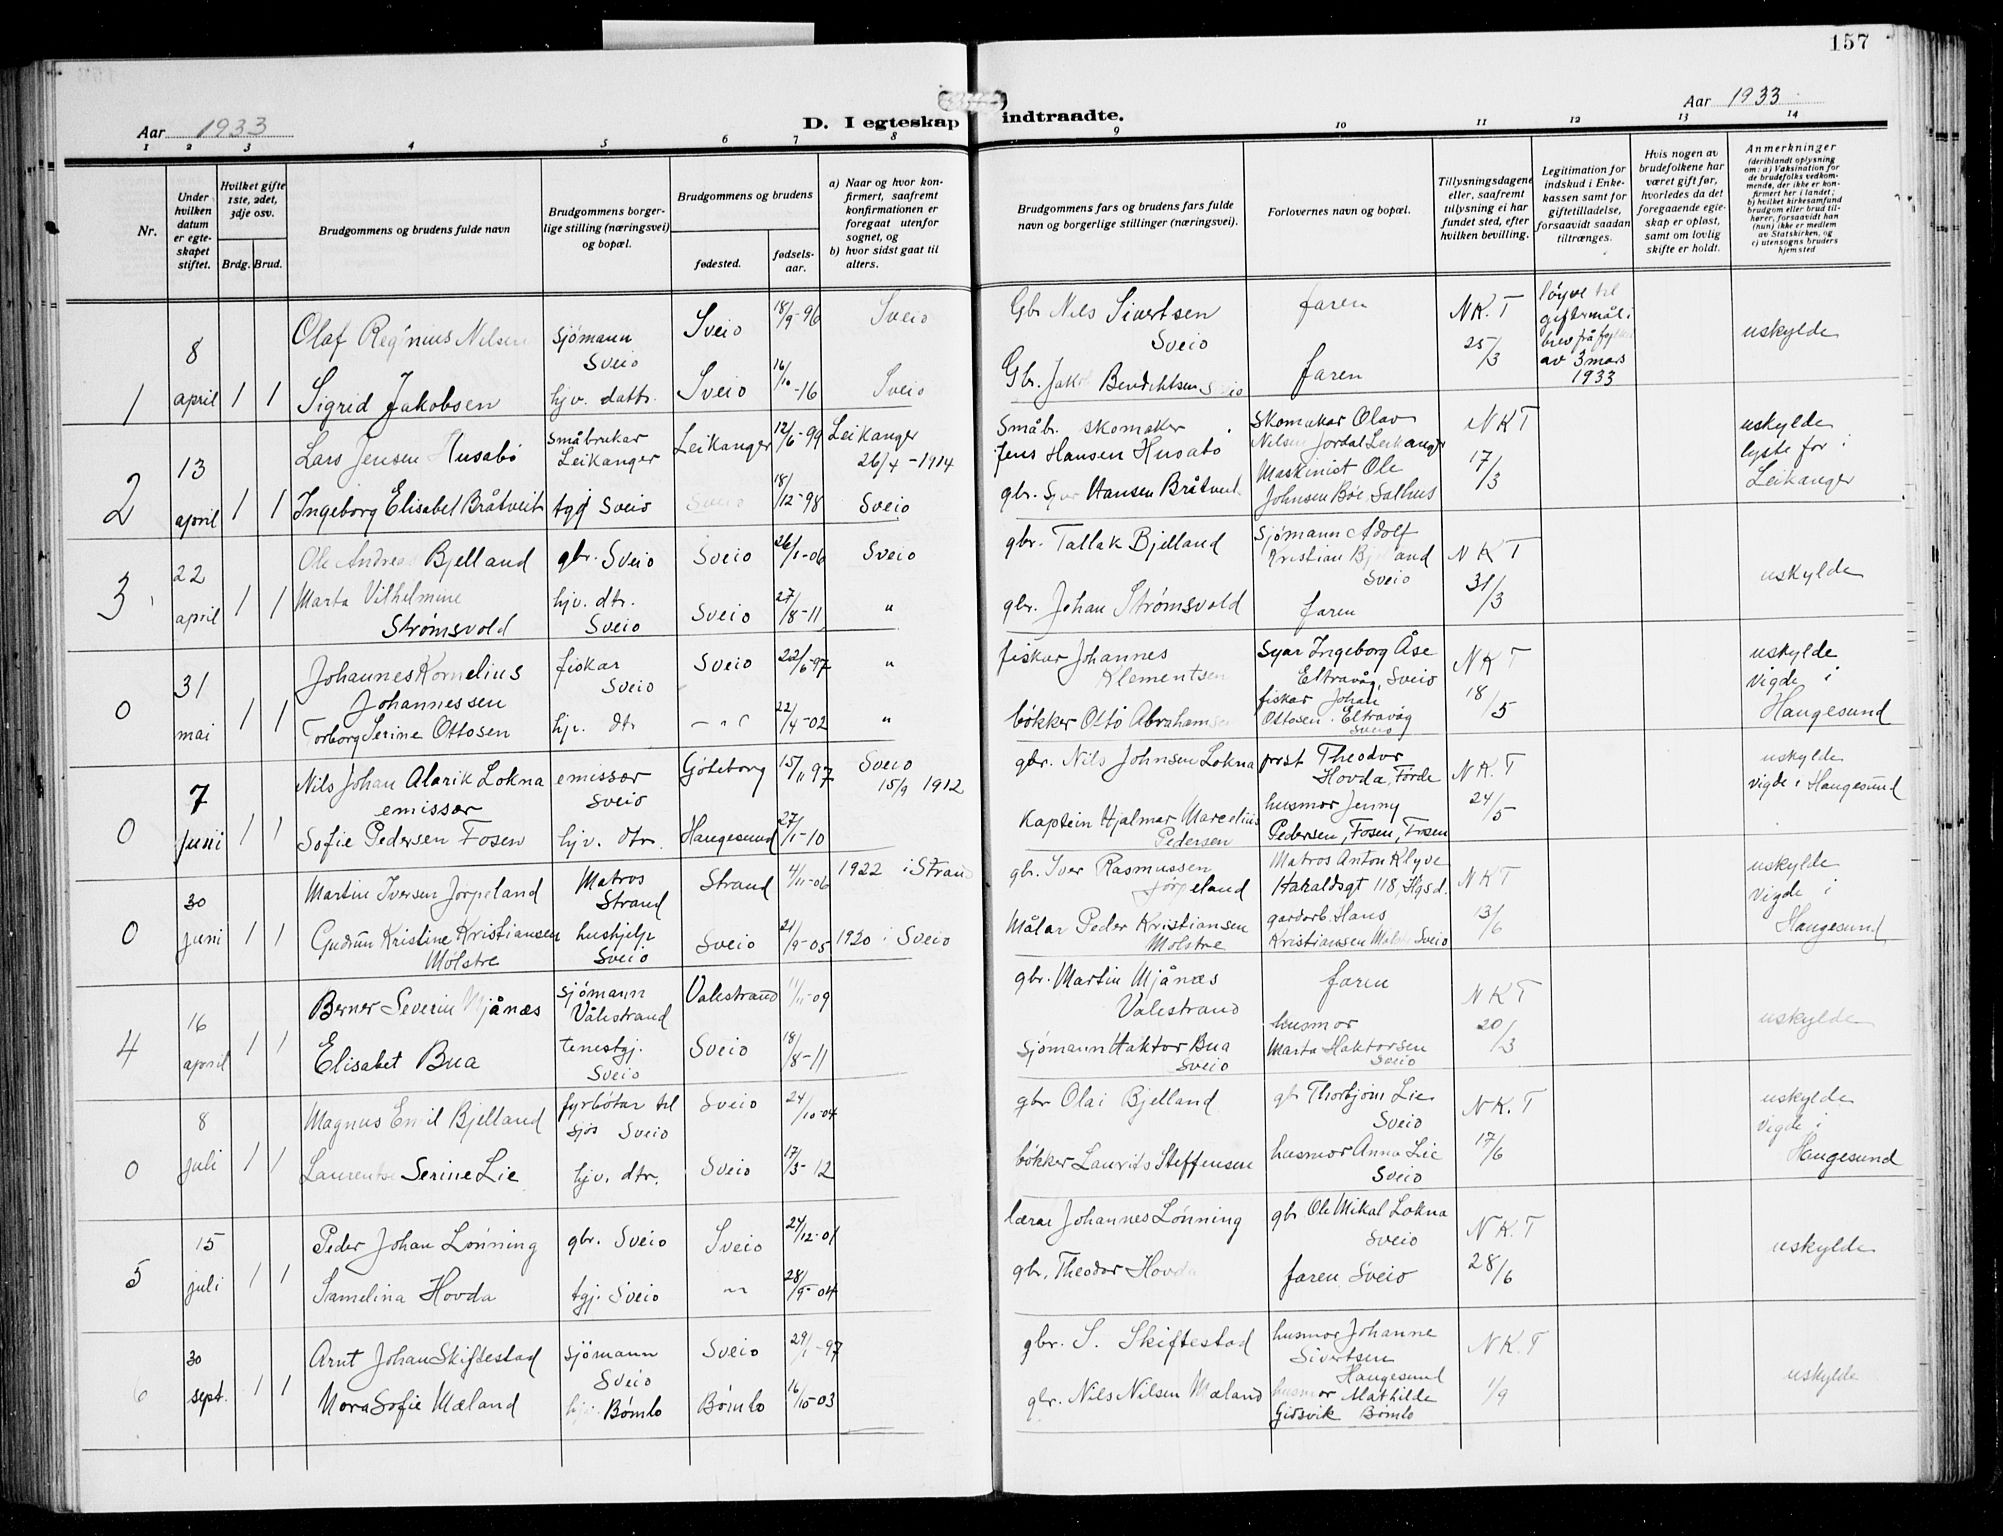 157
Aar 1933
D. I egteskap indtraadte.
Aar 1933
1 2 3 4 5 6 7 8 9 10 11 12 13 14
Nr.
Under hvilken datum er egteskapet stiftet.
Hvilket gifte 1ste, 2det, 3dje osv.
Brdg. Brud.
Brudgommens og brudens fulde navn
Brudgommens borgerlige stilling (næringsvei) og bopæl.
Brudgommens og brudens
fødested.
fødselsaar.
a) Naar og hvor konfirmert, saafremt konfirmationen er foregaat utenfor sognet, og
b) hvor sidst gaat til alters.
Brudgommens fars og brudens fars fulde navn og borgerlige stillinger (næringsvei).
Forlovernes navn og bopæl.
Tillysningsdagene eller, saafremt tillysning ei har fundet sted, efter hvilken bevilling.
Legitimation for indskud i Enkekassen samt for giftetilladelse, forsaavidt saadan tiltrænges.
Hvis nogen av brudefolkene har været gift før, hvorledes da det foregaaende egteskap er opløst, samt om lovlig skifte er holdt.
Anmerkninger
(deriblandt oplysning om: a) Vaksination for de brudefolks vedkommende, der ikke er konfirmert her i landet; b) hvilket kirkesamfund brudgom eller brud tilhører, forsaavidt han (hun) ikke er medlem av Statskirken, og c) utensogns bruders hjemsted
1 8 april 1 1
Olaf Reginius Nilsen sjömann Sveio Sveio 18/9-96 Sveio Gbr Nils Sivertsen Sveio faren N K. T 25/3 løyve til giftermål i brev frå fylk av 3 mars 1933 uskylde
Sigrid Jakobsen hjv. dottr. Sveio 16/10-16 Sveio Gbr. Jakob Bendiktsen Sveio faren
2 13 april 1 1
Lars Jensen Husabö småbrukar Leikanger Leikanger 12/6-99 Leikanger 26/4-1914 Småbr. skomaker Jens Hansen Husabö Skomakar Olav Nilsen Jordal Leikanger N K T 17/3 uskylde lyste for i Leikanger
Ingeborg Elisabet Bråtveit tgj Sveio Sveio 18/12-98 Sveio gbr. Hansen Bråtveit Maskinist Ole Johnsen Böe Salhus
3 22 april 1 1
Ole Andreas Bjelland gbr. Sveio Sveio 26/1-06 Sveio gbr. Tallak Bjelland Sjømann Adolf Kristian Bjelland Sveio N K T 31/3 uskylde
Marta Vilhelmine Strömsvold hjv. dtr. Sveio Sveio 27/8-11 " gbr. Johan Strömsvold faren
0 31 mai 1 1
Johannes Kornelius Johannessen fiskar Sveio Sveio 22/6-97 " fiskar Johannes Klementsen Syar Ingeborg Åse Eltravåg, Sveio N K T 18/5 uskylde vigde i Haugesund
Torborg Serine Ottosen hjv. dtr 22/4-02 " bökker Otto Abrahamsen fiskar Johan Ottosen. Eltravåg Sveio
0 7 juni 1 1
Nils Johan Alarik Lokna emissær emissær Sveio Göteborg 15/11 97 Sveio 15/9 1912 gbr. Nils Johnsen Lokna prest Theodor Hovda, Förde N K. T 24/5 uskylde vigde i Haugesund
Sofie Pedersen Fosen hjv. dtr. Haugesund 27/1-10 Kaptein Hjalmar Marcelius Pedersen husmor Jenny Pedersen, Fosen, Fosen
0 30 juni 1 1
Martin Iversen Jörpeland Matros Strand Strand 4/11-06 1922 i Strand gbr. Iver Rasmussen Jörpeland Matros Anton Klyve Haraldsgt 118, Hgsd. N K T 13/6 uskylde Vigde i Haugesund
Gudrun Kristine Kristiansen Molstre hushjelp Sveio Sveio 21/9-05 1920 i Sveio Målar Peder Kristiansen Molstre gardarb. Hans Kristiansen Molstre Sveio
4 16 april 1 1
Berner Severin Mjånæs sjömann Vålestrand Valestrand 11/11-09 gbr. Martin Mjånæs Valestrand faren N K T 20/3 uskylde
Elisabet Bua tenestgj. Sveio Sveio 18/8-11 sjömann Haktor Bua Sveio husmor Marta Haktorsen Sveio
0 8 juli 1 1
Magnus Emil Bjelland fyrbötar til sjös Sveio Sveio 24/10-04 gbr Olai Bjelland gb Thorbjörn Lie Sveio N K. T 17/6 uskylde Vigde i Haugesund
Laurentse Serine Lie hjv. dtr. Sveio 17/3-12 bökker Laurits Steffensen husmor Anna Lie Sveio
5 15 juli 1 1
Peder Johan Lönning gbr. Sveio Sveio 24/12-01 lærar Johannes Lönning gbr Ole Mikal Lokna Sveio N K T 28/6 uskylde
Samelina Hovda tgj. Sveio 28/9-04 gbr. Theodor Hovda faren Sveio
6 30 sept. 1 1
Arnt Johan Skiftestad sjömann Sveio Sveio 29/1-97 gbr. S. Skiftestad husmor Johanne Sivertsen Haugesund N K. T 1/9 uskylde
Nora Sofie Mæland Bömlo Bömlo 16/10-03 gbr. Nils Nilsen Mæland husmor Mathilde Gidsvik Bömlo